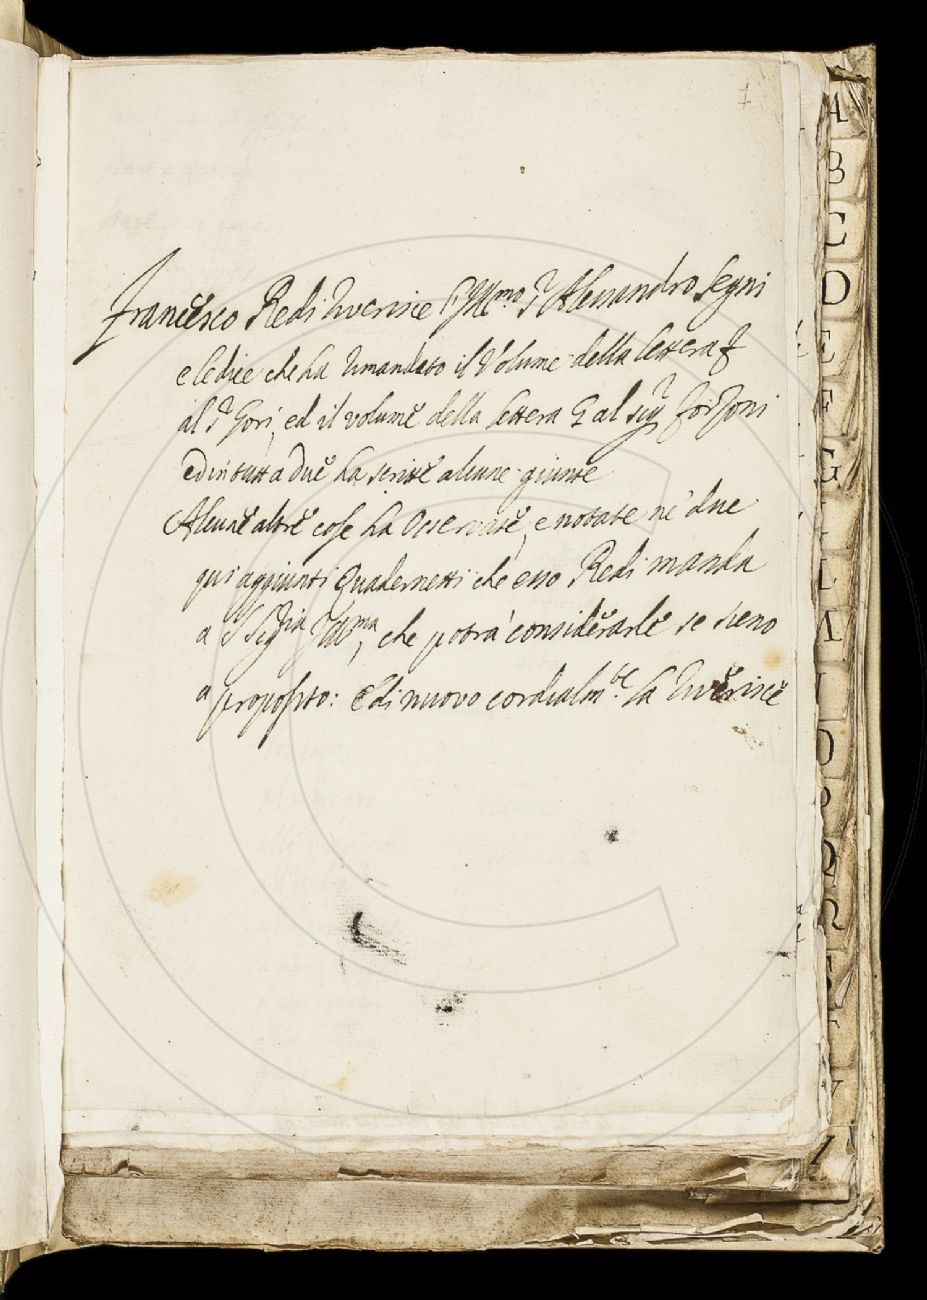 1
Francesco Redi riverisce l'Illmo Sr Alessandro Segni
e le dice che ha rimandato il Volume della lettera F
al Sr Gori, ed il volume della lettera G al Sigr Forzoni
ed in tutta due ha scritte alcune giunte
Alcune altre cose ha osservate, e notate ne' due
qui aggiunti Quadernetti che esso Redi manda
a S Sigria Illma, che potrà considerarle se sieno
a proposito: e di nuovo cordialmte la riverisce
A
B
C
D
E
F
G
I
L
O
P
Q
R